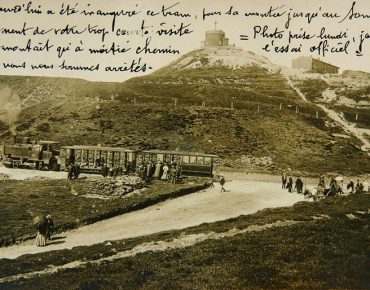 ourd'hui a été inauguré ce tram, pour sa montée jusqu'au Som
ment de votre trop courte visite
montait qu'à moitié chemin
vous nous sommes arrêtés.
= Photo prise lundi, ja
l'essai officiel =